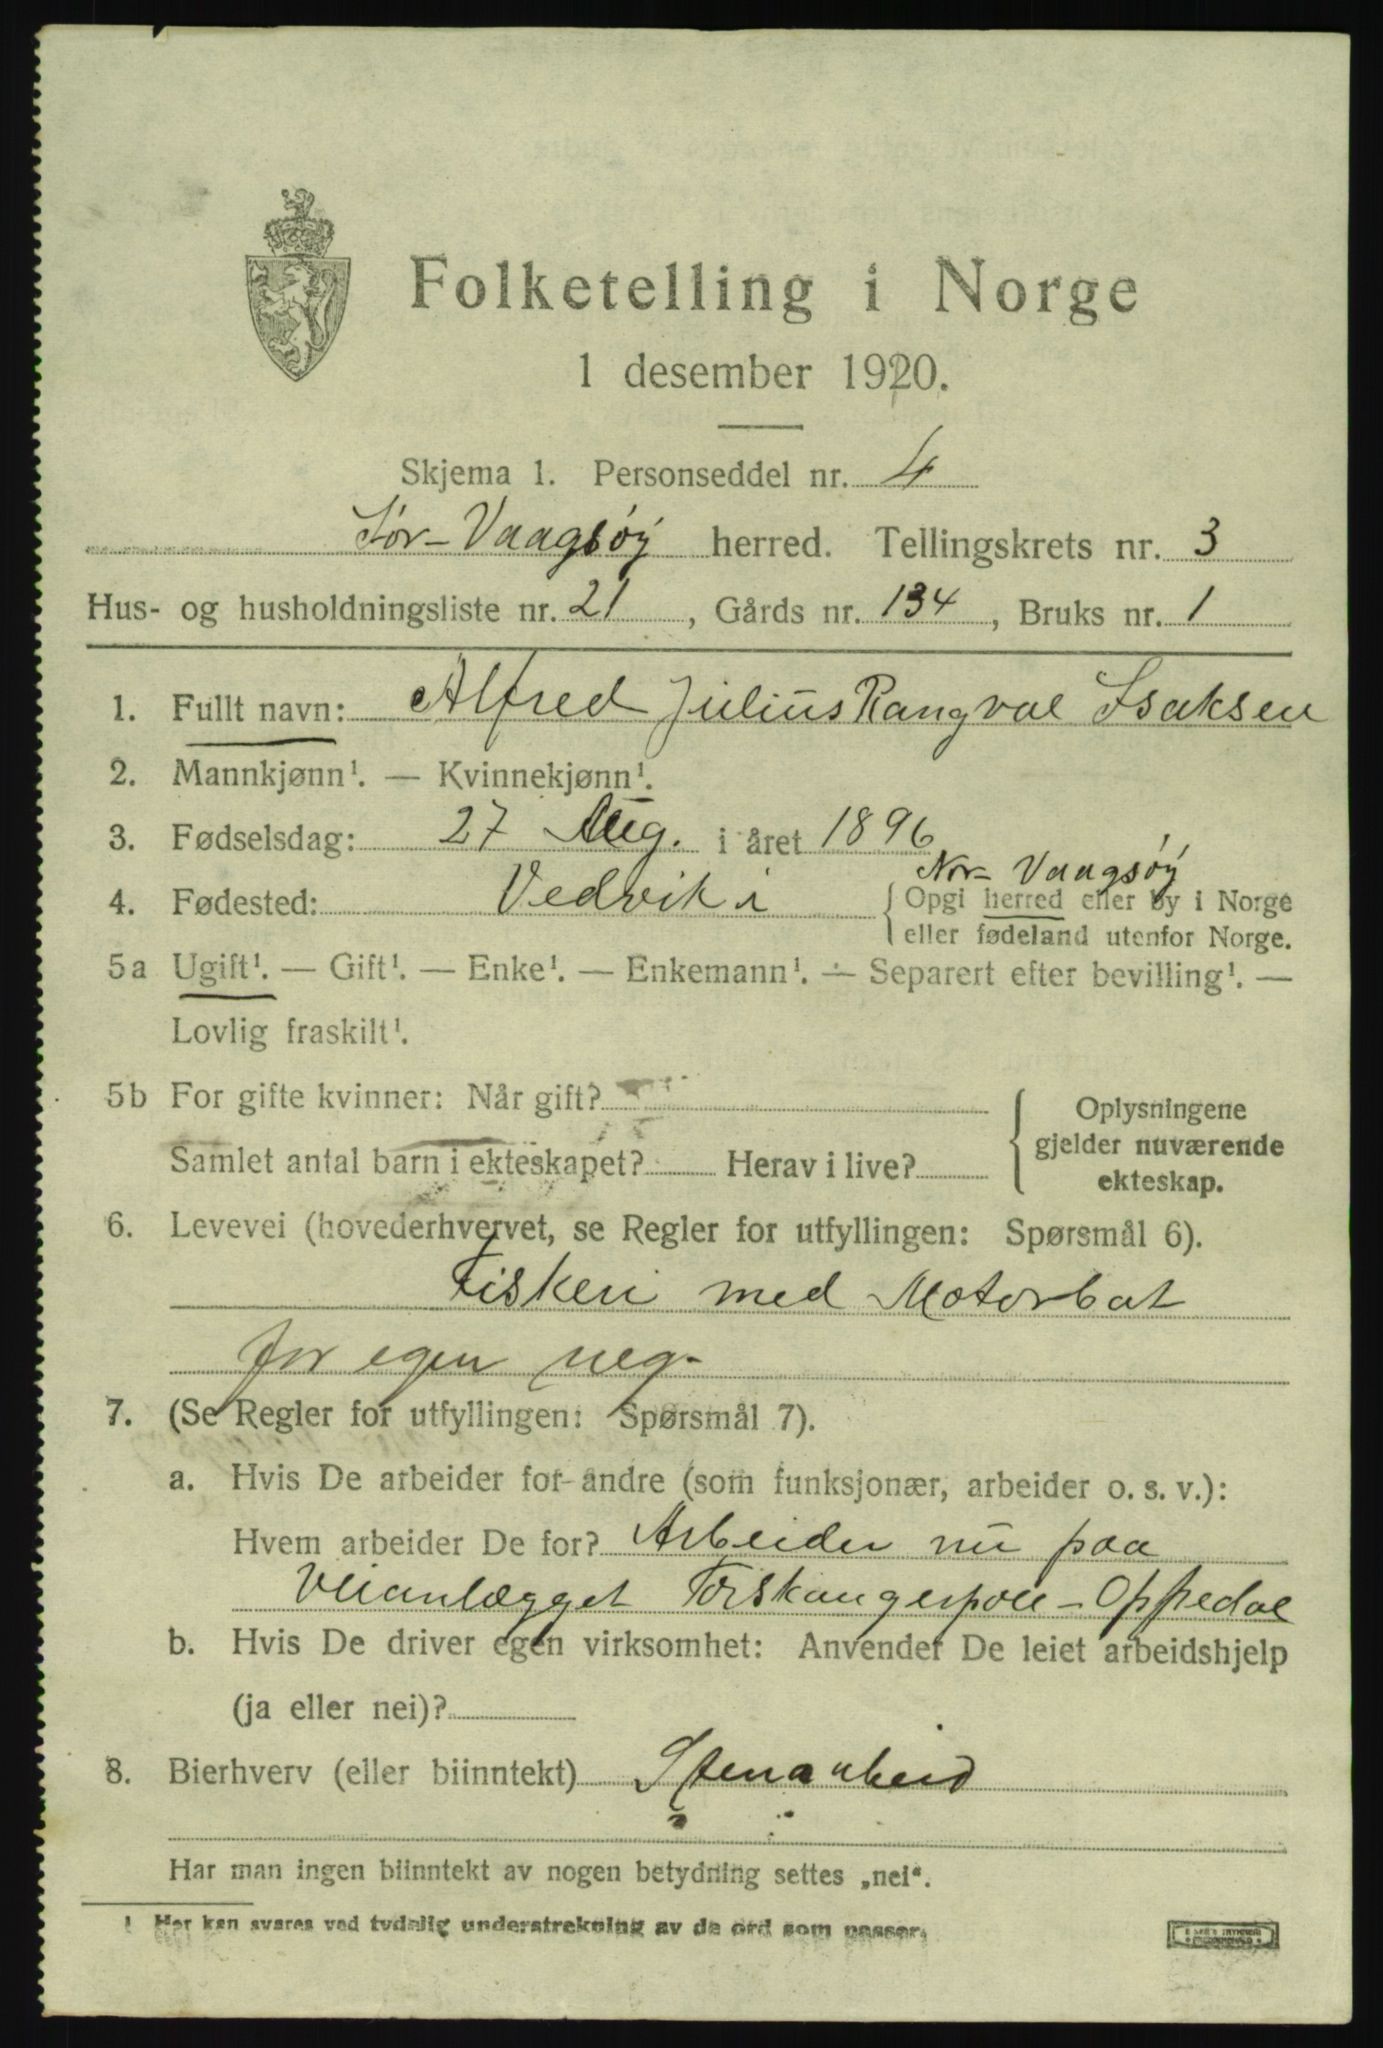 Folketelling i Norge
1 desember 1920.
Skjema 1. Personseddel nr. 4
Sør-Vaagsøy herred. Tellingskrets nr. 3
Hus- og husholdningsliste nr. 21, Gårds nr. 134, Bruks nr. 1
1. Fullt navn: Alfred Julius Rangval Isaksen
2. Mannkjønn¹. — Kvinnekjønn¹.
3. Fødselsdag: 27 Aug. i året 1896
Nor-Vaagsøy
4. Fødested: Vedvik i { Opgi herred eller by i Norge
eller fødeland utenfor Norge.
5a Ugift¹. — Gift¹. — Enke¹. — Enkemann¹. — Separert efter bevilling¹. —
Lovlig fraskilt¹.
5b For gifte kvinner: Når gift?
Samlet antal barn i ekteskapet? Herav i live?
Oplysningene
gjelder nuværende
ekteskap.
6. Levevei (hovederhvervet, se Regler for utfyllingen: Spørsmål 6).
Fiskeri med Motorbat
for egen reg.
7. (Se Regler for utfyllingen: Spørsmål 7).
a. Hvis De arbeider for andre (som funksjonær, arbeider o. s. v.):
Hvem arbeider De for? Arbeider nu paa
Veianlægget Torskangerpoll - Oppedal
b. Hvis De driver egen virksomhet: Anvender De leiet arbeidshjelp
(ja eller nei)?
8. Bierhverv (eller biinntekt) Stenarbeid
Har man ingen biinntekt av nogen betydning settes „nei“.
1 Her kan svares ved tydelig understrekning av de ord som passer.